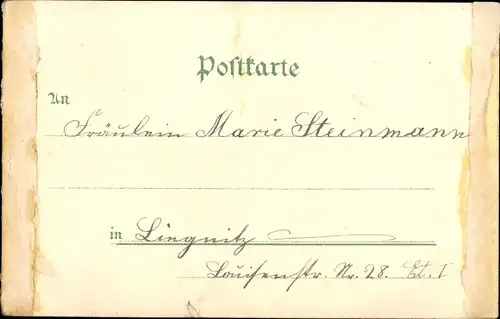 Postkarte
An
Fräulein Marie Steinmann
in Liegnitz
Louisenstr. Nr. 28. Et. I